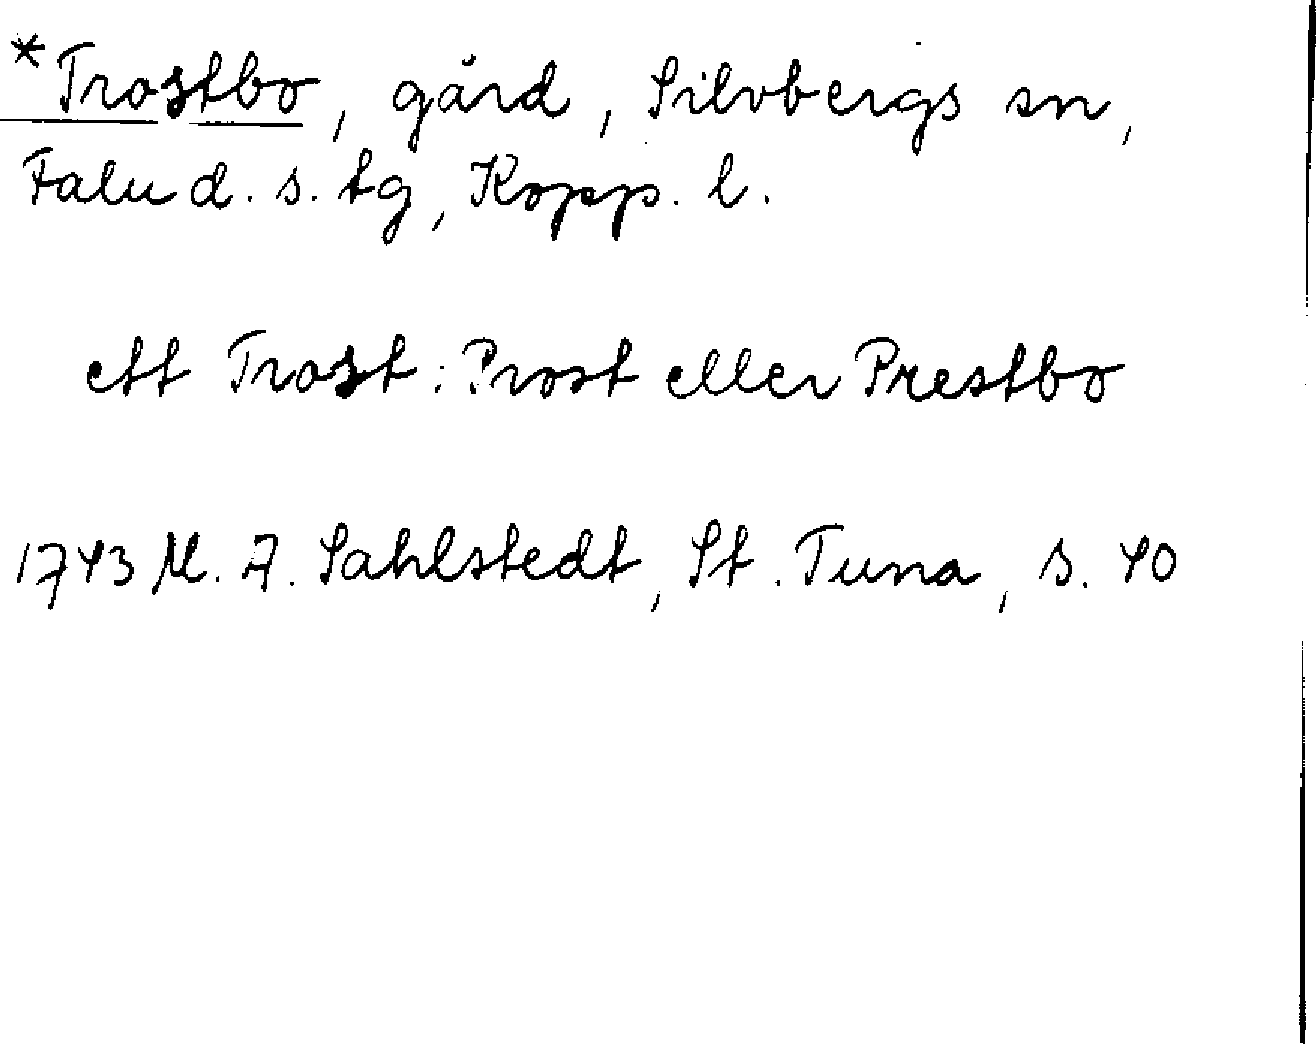 *Trostbo, gård, Silvbergs sn,
Falu d. s. tg, Kopp. l.
ett Trost: Prost eller Prestbo
1743 M. A. Sahlstedt, St. Tuna, s. 40